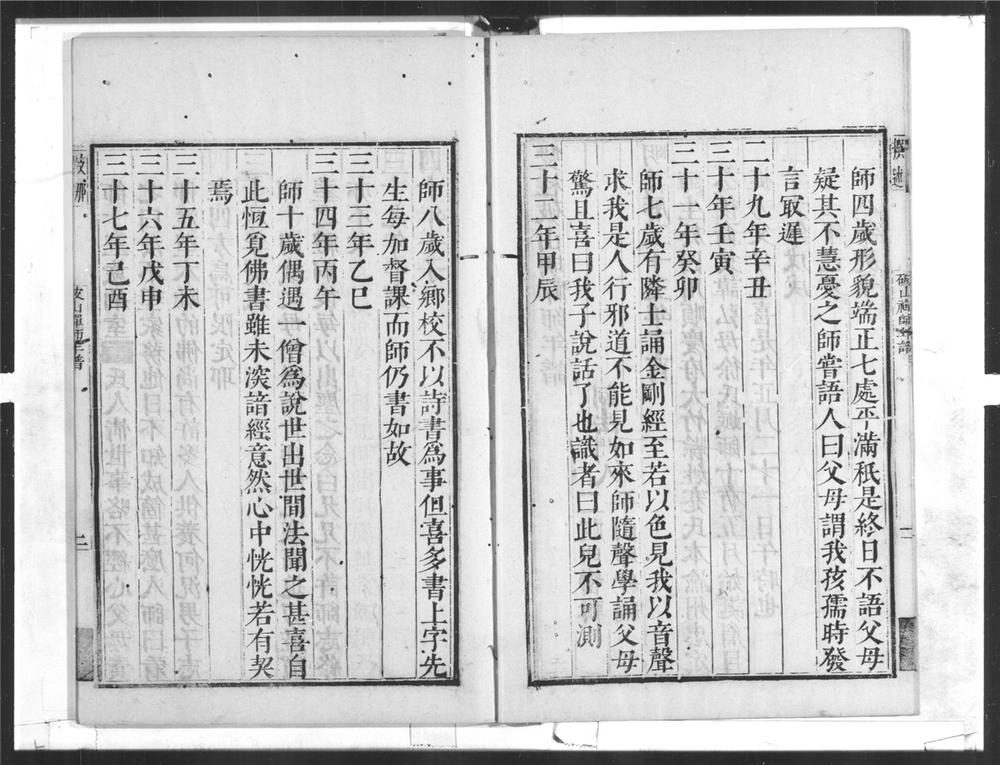 師四歲形貌端正七處平滿秖是終日不語父母
疑其不慧憂之師嘗語人曰父母謂我孩孺時發
言取遲
二十九年辛丑
三十年壬寅
三十一年癸卯
師七歲有隣士誦金剛經至若以色見我以音聲
求我是人行邪道不能見如來師隨聲學誦父母
驚且喜曰我子說話了也識者曰此兒不可測
三十二年甲辰
師八歲入鄉校不以詩書爲事但喜多書上字先
生每加督課而師仍書如故
三十三年乙巳
三十四年丙午
師十歲偶遇一僧爲說世出世間法聞之甚喜自
此恒覓佛書雖未深諳經意然心中恍恍若有契
焉
三十五年丁未
三十六年戊申
三十七年己酉